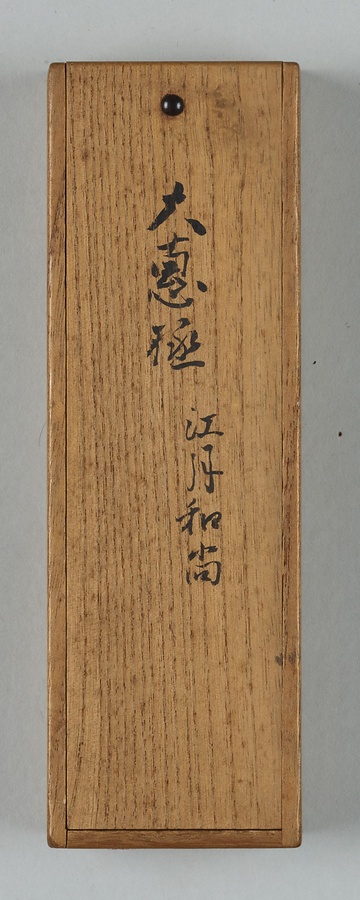 大惠極
江月和尚